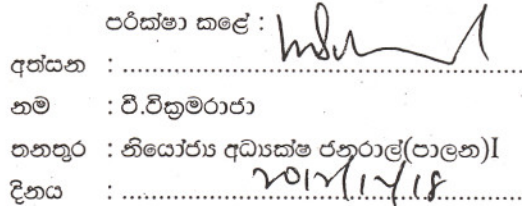 පරික්ෂා කළේ :
අත්සන : ....................................................
නම : වී.වික්‍රමරාජා
තනතුර : නියෝජ්‍ය අධ්‍යක්ෂ ජනරාල්(පාලන)I
දිනය : ....................................................